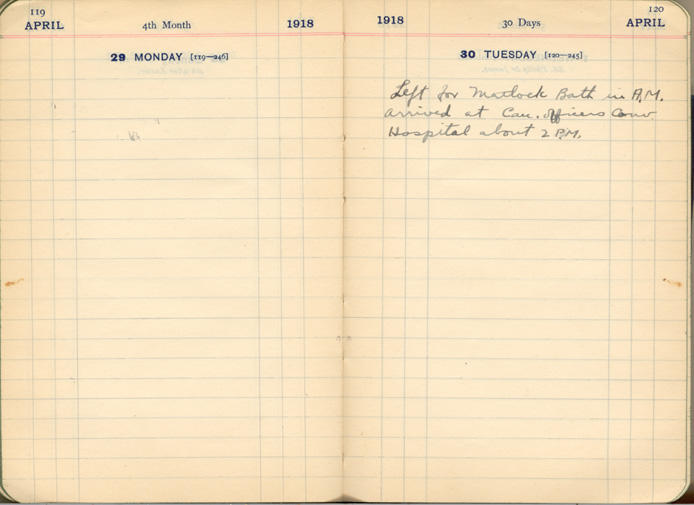 119
APRIL
4th Month
1918
29 MONDAY [119—246]
1918
30 Days
120
APRIL
30 TUESDAY [120—245]
Left for Matlock Bath in A.M.
arrived at Can. Officers Conv
Hospital about 2 P.M.